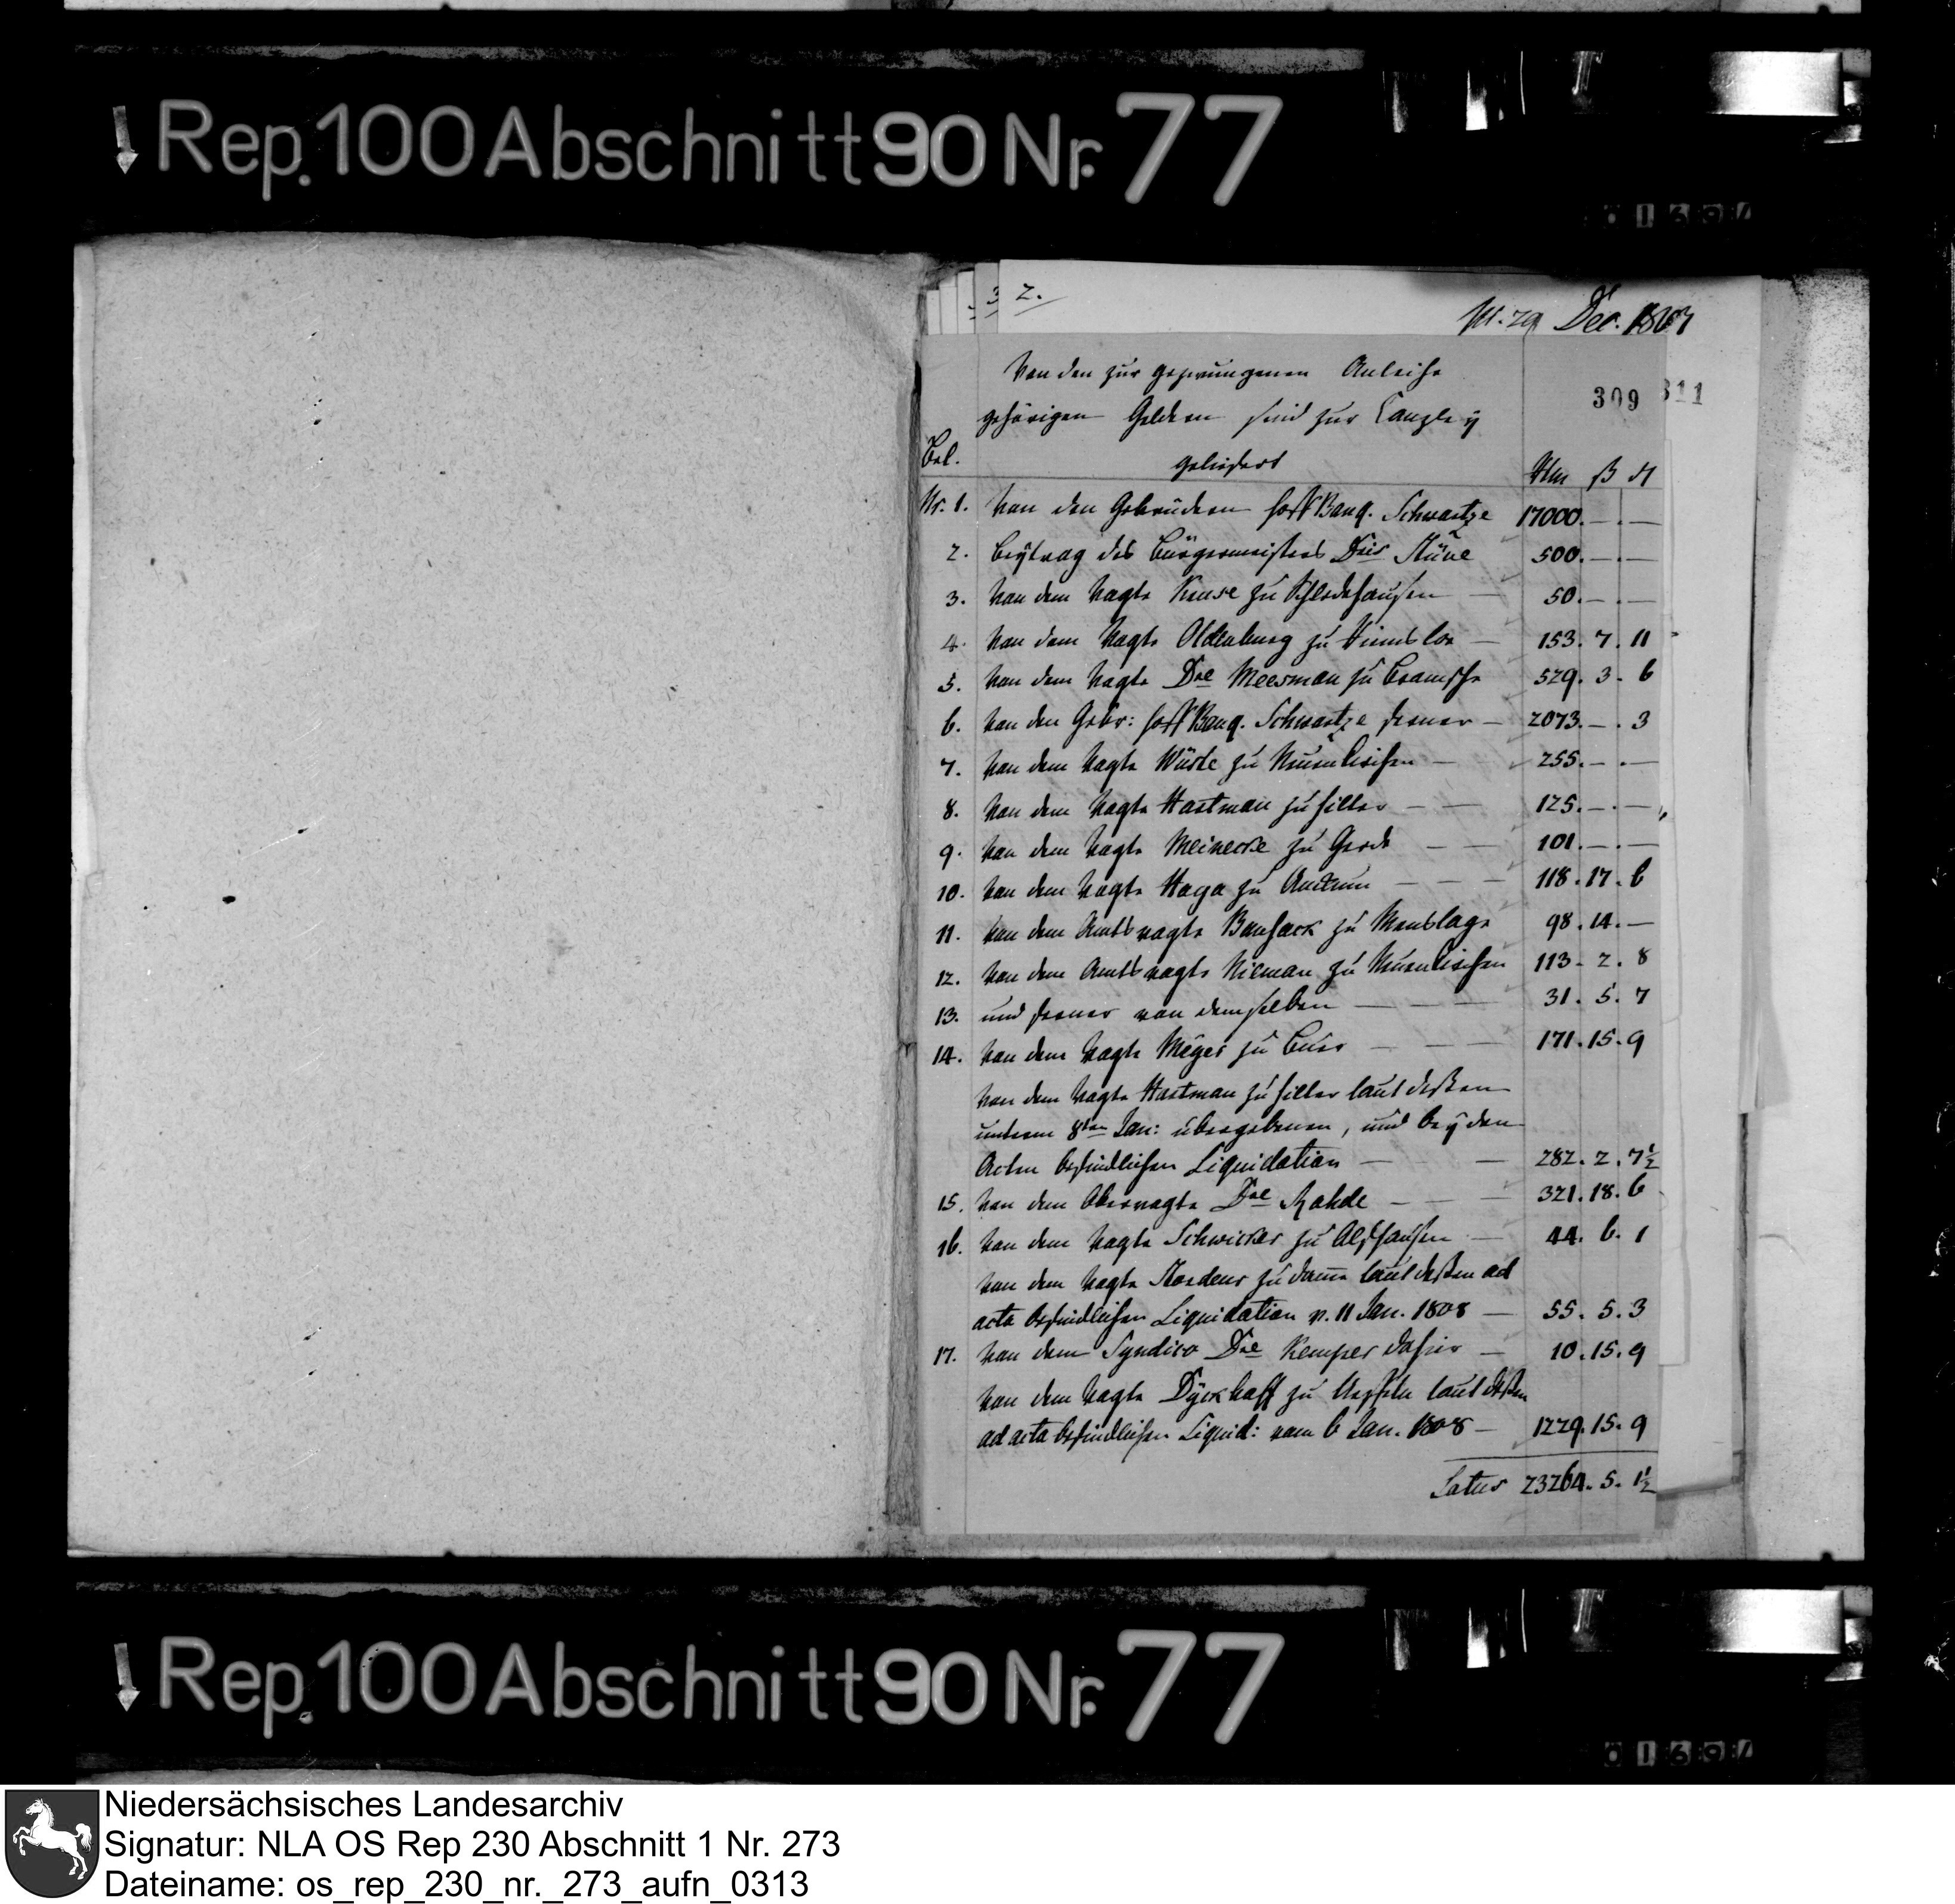 Rep. 100 Abschnitt 90 Nr. 77
3 2.
pr. 29 Dec. 1807
309 311
Von den zur gezwungenen Anleihe
gehörigen Geldern sind zur Canzleÿ
geliefert
Bel. Rthlr ß d
Nr. 1. Von den Gebrüdern Hoff Banq. Schwartze 17000. — . —
2. Beÿtrag des Bürgermeisters Dris Stüve 500. — . —
3. Von dem Vogte Kruse zu Schledehausen — 50. — . —
4. Von dem Vogte Oldenburg zu Wimbke — 153. 7. 11
5. Von dem Vogte Dre Meesman zu Bramsche 529. 3. 6
6. Von den Gebr: Hoff Banq. Schwartze ferner — 2073. — . 3
7. Von dem Vogte Wüste zu Neuenkirchen — 255. — . —
8. Von dem Vogte Hartman zu Hilter — — 125. — . —
9. Von dem Vogte Meinecke zu Gerde — — 101. — . —
10. Von dem Vogte Haga zu Ankum — — — 118. 17. 6
11. Von dem Amtsvogte Banfack zu Menslage 98. 14. —
12. Von dem Amtsvogte Nieman zu Neuenkirchen 113. 2. 8
13. und ferner von demselben — — — 31. 5. 7
14. Von dem Vogte Meyer zu Buer — — — 171. 15. 9
Von dem Vogte Hartman zu Hilter laut deßen
unterm 8ten Jan: übergebenen, und beÿ den
Acten befindlichen Liquidation — — 282. 2. 7½
15. Von dem Obervogte Dre Rohde — — — 321. 18. 6
16. Von dem Vogte Schwicker zu Alfhausen — 44. 6. 1
Von dem Vogte Nordens zu Damme laut deßen ad
acta befindlichen Liquidation v. 11 Jan. 1808 — 55. 5. 3
17. Von dem Syndico Dre Kemper dahier — 10. 15. 9
Von dem Vogte Dÿckhoff zu Ueffeln laut deßen
ad acta befindlichen Liquid: vom 6 Jan. 1808 — 1229. 15. 9
Latus 23264. 5. 1½
Rep. 100 Abschnitt 90 Nr. 77
Niedersächsisches Landesarchiv
Signatur: NLA OS Rep 230 Abschnitt 1 Nr. 273
Dateiname: os_rep_230_nr._273_aufn_0313